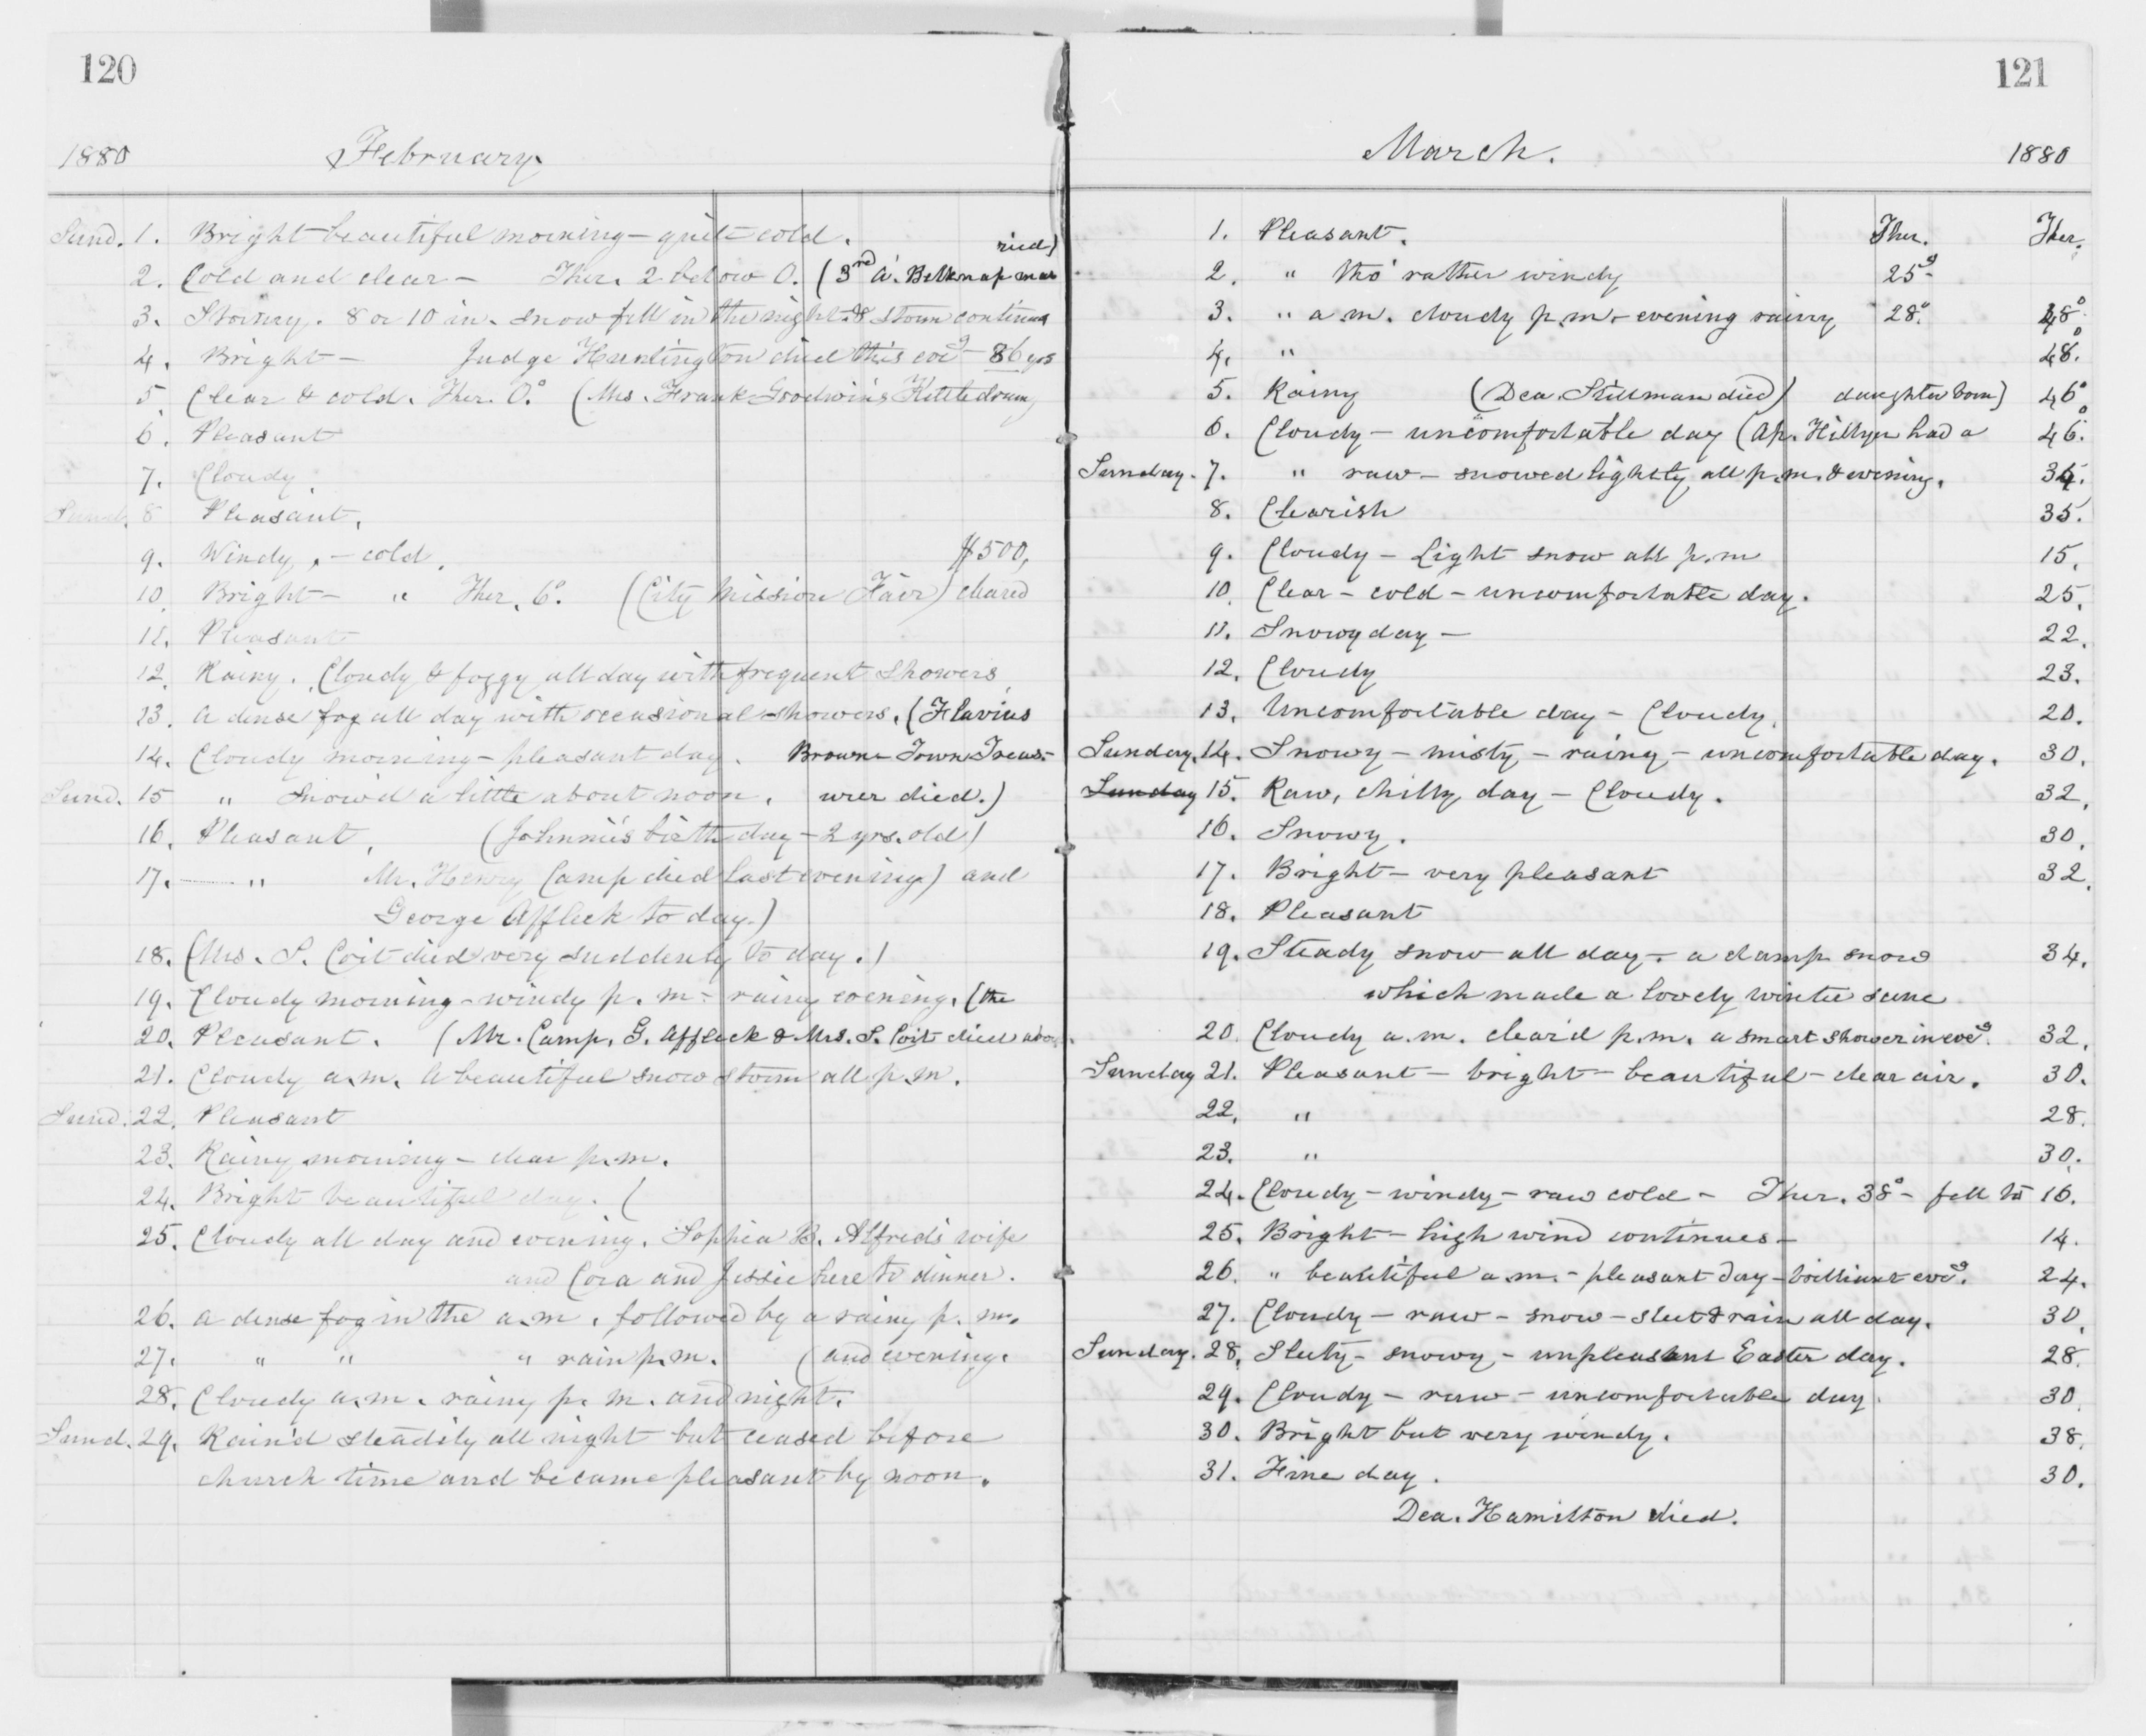 120
1880 February
ried)
Sund. 1. Bright beautiful morning - quite cold.
2. Cold and clear - Ther. 2 below 0. (3rd A. Belknap mar
3. Stormy. 8 or 10 in. snow fell in the night & storm continues
4. Bright - Judge Huntington died this eveg - 86 yrs
5. Clear & cold. Ther. 0.° (Mrs. Frank Goodwin's Kettledrum)
6. Pleasant
7. Cloudy.
Sund. 8 Pleasant.
9. Windy, - cold. $500,
10. Bright - " Ther. 6.° (City Mission Fair) cleared
11. Pleasant
12. Rainy. Cloudy & foggy all day with frequent showers
13. A dense fog all day with occasional showers. (Flavius
14. Cloudy morning - pleasant day. Browne Town Treas-
Sund. 15 " Snow'd a little about noon. urer died.)
16. Pleasant. (Johnnie's birthday - 2 yrs. old)
17. " Mr. Henry Camp died last evening) and
George Affleck to day.)
18. (Mrs. S. Coit died very suddenly to day.)
19. Cloudy morning - windy p. m - rainy evening. (the
20. Pleasant. (Mr. Camp, G. Affleck & Mrs. S. Coit died above.
21. Cloudy a.m. A beautiful snow storm all p.m.
Sund. 22. Pleasant
23. Rainy morning - clear p.m.
24. Bright beautiful day. (
25. Cloudy all day and evening. Sophia B. Alfred's wife
and Cora and Jessie here to dinner.
26. A dense fog in the a.m. followed by a rainy p. m.
27. " " " rain p.m. (and evening.
28. Cloudy a.m. rainy p. m. and night.
Sund. 29. Rain'd steadily all night but ceased before
church time and became pleasant by noon.
121
March. 1880
1. Pleasant. Ther. Ther.
2. " tho' rather windy 25°
3. " a.m. cloudy p.m - evening rainy 28.° 48°
4. " 48.°
5. Rainy (Dea. Stillman died) daughter born) 46°
6. Cloudy - uncomfortable day (Ap. Hillyer had a 46.°
Sunday. 7. " raw - snowed lightly all p.m. & evening. 34.
8. Clearish 35.
9. Cloudy - Light snow all p.m 15.
10. Clear - cold - uncomfortable day. 25.
11. Snowy day - 22.
12. Cloudy 23.
13. Uncomfortable day - Cloudy. 20.
Sunday. 14. Snowy - misty - rainy - uncomfortable day. 30.
Sunday 15. Raw, chilly day - Cloudy. 32.
16. Snowy. 30.
17. Bright - very pleasant 32.
18. Pleasant
19. Steady snow all day - a damp snow 34.
which made a lovely winter scene
20. Cloudy a.m. clear'd p.m. a smart shower in eveg. 32.
Sunday 21. Pleasant - bright - beautiful - clear air. 30.
22. " 28.
23. " 30.
24. Cloudy - windy - raw cold - Ther. 38° - fell to 16.
25. Bright - high wind continues - 14.
26. " beautiful a.m. - pleasant day - brilliant eveg. 24.
27. Cloudy - raw - snow - sleet & rain all day. 30.
Sunday. 28. Sleety - snowy - unpleasant Easter day. 28.
29. Cloudy - raw - uncomfortable day. 30.
30. Bright but very windy. 38.
31. Fine day. 30.
Dea. Hamilton died.